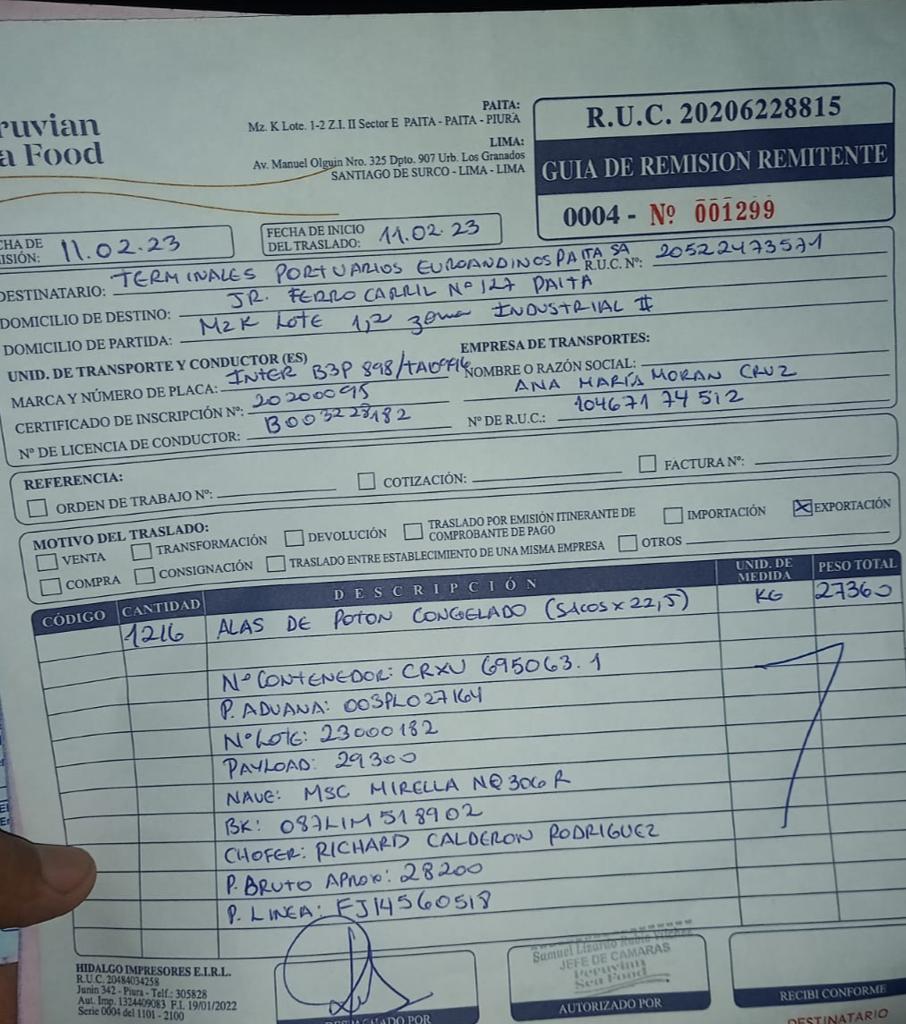 ruvian
a Food
PAITA:
Mz. K Lote. 1-2 Z.I. II Sector E PAITA - PAITA - PIURA
LIMA:
Av. Manuel Olguin Nro. 325 Dpto. 907 Urb. Los Granados
SANTIAGO DE SURCO - LIMA - LIMA
R.U.C. 20206228815
GUIA DE REMISION REMITENTE
0004 - Nº 001299
CHA DE
ISIÓN: 11.02.23
FECHA DE INICIO
DEL TRASLADO: 11.02.23
DESTINATARIO: TERMINALES PORTUARIOS EUROANDINOS PAITA SA R.U.C. Nº: 20522473571
DOMICILIO DE DESTINO: JR. FERRO CARRIL Nº 127 PAITA
DOMICILIO DE PARTIDA: MZK LOTE 1,2 zona INDUSTRIAL II
UNID. DE TRANSPORTE Y CONDUCTOR (ES)
MARCA Y NÚMERO DE PLACA: INTER B3P 898/
CERTIFICADO DE INSCRIPCIÓN Nº: 20200095
Nº DE LICENCIA DE CONDUCTOR: B003228182
EMPRESA DE TRANSPORTES:
NOMBRE O RAZÓN SOCIAL:
ANA MARÍA MORAN CRUZ
Nº DE R.U.C.: 10467174512
REFERENCIA:
ORDEN DE TRABAJO Nº:
COTIZACIÓN:
FACTURA Nº:
MOTIVO DEL TRASLADO:
VENTA
TRANSFORMACIÓN
DEVOLUCIÓN
TRASLADO POR EMISIÓN ITINERANTE DE
COMPROBANTE DE PAGO
IMPORTACIÓN
EXPORTACIÓN
COMPRA
CONSIGNACIÓN
TRASLADO ENTRE ESTABLECIMIENTO DE UNA MISMA EMPRESA
OTROS
CÓDIGO CANTIDAD DESCRIPCIÓN UNID. DE MEDIDA PESO TOTAL
1216 ALAS DE POTON CONGELADO (SACOS x 22,5) KG 27360
Nº CONTENEDOR: CRXU 695063.1
P. ADUANA: 003PL027164
Nº LOTE: 23000182
PAYLOAD: 29300
NAVE: MSC MIRELLA NQ306R
BK: 087LIM518902
CHOFER: RICHARD CALDERON RODRIGUEZ
P. BRUTO APROX: 28200
P. LINEA: FJ14560518
HIDALGO IMPRESORES E.I.R.L.
R.U.C. 20484034258
Junin 342 - Piura - Telf.: 305828
Aut. Imp. 1324409083 F.I. 19/01/2022
Serie 0004 del 1101 - 2100
POR
Samuel Lizardo
JEFE DE CAMARAS
Peruvian
Sea Food
AUTORIZADO POR
RECIBI CONFORME
DESTINATARIO